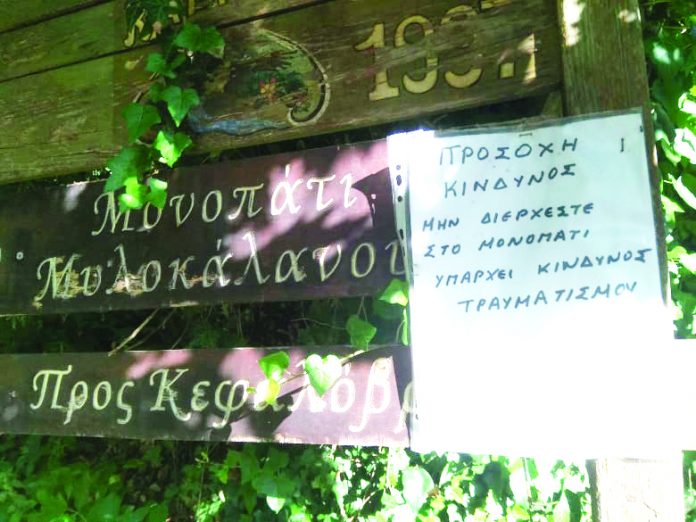 1997
Μονοπάτι
Μυλοκάλανου
Προς
ΠΡΟΣΟΧΗ
ΚΙΝΔΥΝΟΣ
ΜΗΝ ΔΙΕΡΧΕΣΤΕ
ΣΤΟ ΜΟΝΟΠΑΤΙ
ΥΠΑΡΧΕΙ ΚΙΝΔΥΝΟΣ
ΤΡΑΥΜΑΤΙΣΜΟΥ